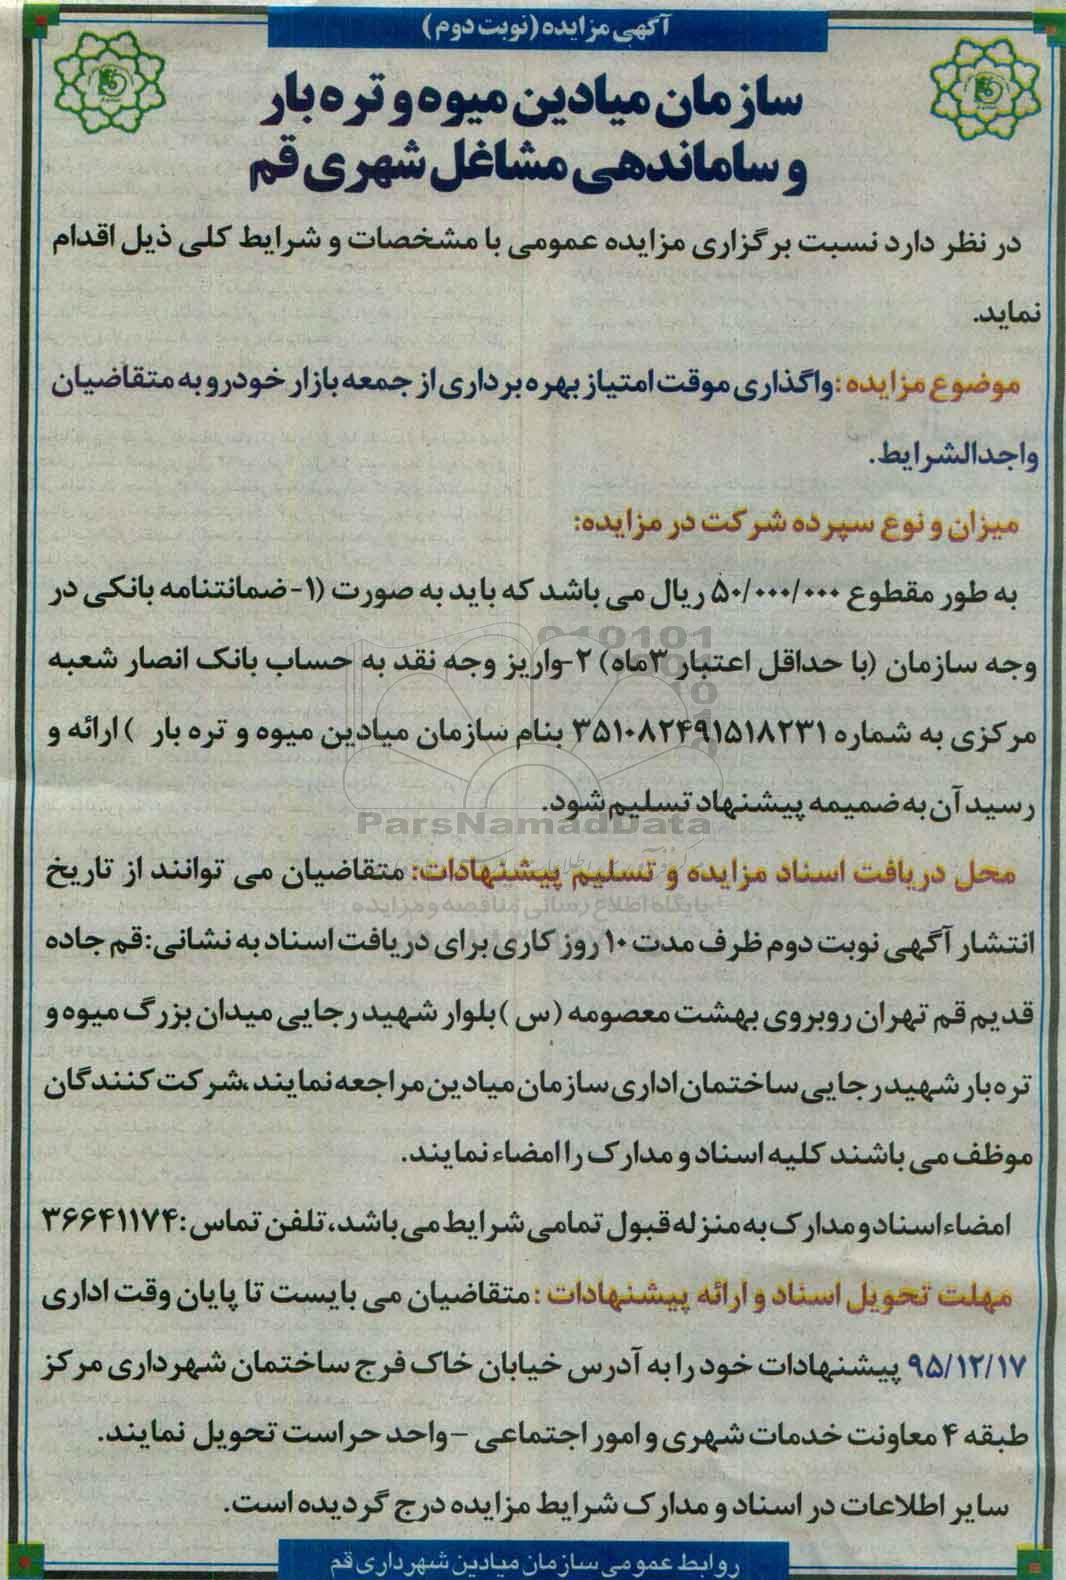 آگهی مزایده (نوبت دوم)
سازمان میادین میوه و تره بار
و ساماندهی مشاغل شهری قم
در نظر دارد نسبت برگزاری مزایده عمومی با مشخصات و شرایط کلی ذیل اقدام
نماید.
موضوع مزایده: واگذاری موقت امتیاز بهره برداری از جمعه بازار خودرو به متقاضیان
واجدالشرایط.
میزان و نوع سپرده شرکت در مزایده:
به طور مقطوع ۵۰/۰۰۰/۰۰۰ ریال می باشد که باید به صورت (۱- ضمانتنامه بانکی در
وجه سازمان (با حداقل اعتبار ۳ماه) ۲-واریز وجه نقد به حساب بانک انصار شعبه
مرکزی به شماره ۳۵۱۰۸۲۴۹۱۵۱۸۲۳۱ بنام سازمان میادین میوه و تره بار ) ارائه و
رسید آن به ضمیمه پیشنهاد تسلیم شود.
ParsNamadData
محل دریافت اسناد مزایده و تسلیم پیشنهادات: متقاضیان می توانند از تاریخ
پایگاه اطلاع رسانی مناقصه و مزایده
انتشار آگهی نوبت دوم ظرف مدت ۱۰ روز کاری برای دریافت اسناد به نشانی: قم جاده
قدیم قم تهران روبروی بهشت معصومه (س) بلوار شهید رجایی میدان بزرگ میوه و
تره بار شهید رجایی ساختمان اداری سازمان میادین مراجعه نمایند، شرکت کنندگان
موظف می باشند کلیه اسناد و مدارک را امضاء نمایند.
امضاء اسناد و مدارک به منزله قبول تمامی شرایط می باشد، تلفن تماس: ۳۶۶۴۱۱۷۴
مهلت تحویل اسناد و ارائه پیشنهادات: متقاضیان می بایست تا پایان وقت اداری
۹۵/۱۲/۱۷ پیشنهادات خود را به آدرس خیابان خاک فرج ساختمان شهرداری مرکز
طبقه ۴ معاونت خدمات شهری و امور اجتماعی - واحد حراست تحویل نمایند.
سایر اطلاعات در اسناد و مدارک شرایط مزایده درج گردیده است.
روابط عمومی سازمان میادین شهرداری قم